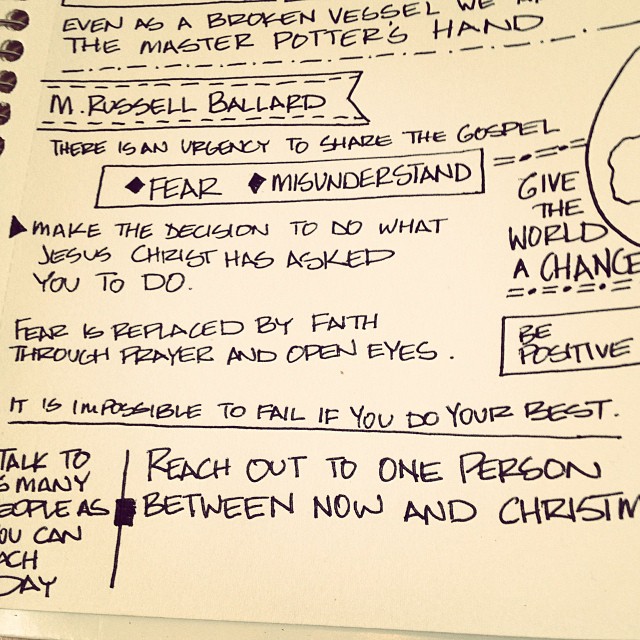 EVEN AS A BROKEN VESSEL WE
THE MASTER POTTER'S HAND
M. RUSSELL BALLARD
THERE IS AN URGENCY TO SHARE THE GOSPEL
FEAR MISUNDERSTAND
MAKE THE DECISION TO DO WHAT
JESUS CHRIST HAS ASKED
YOU TO DO.
GIVE
THE
WORLD
A CHANCE
FEAR IS REPLACED BY FAITH
THROUGH PRAYER AND OPEN EYES.
BE
POSITIVE
IT IS IMPOSSIBLE TO FAIL IF YOU DO YOUR BEST.
TALK TO
S MANY
EOPLE AS
OU CAN
ACH
DAY
REACH OUT TO ONE PERSON
BETWEEN NOW AND CHRISTM